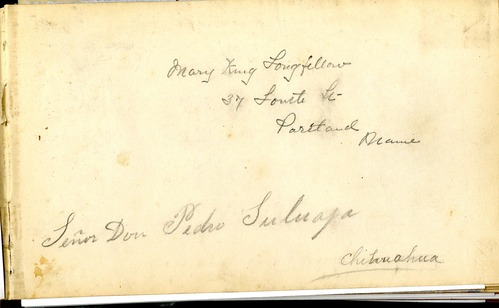 Mary King Longfellow
37 St
Portland
Maine
Señor Don Pedro
Chihuahua